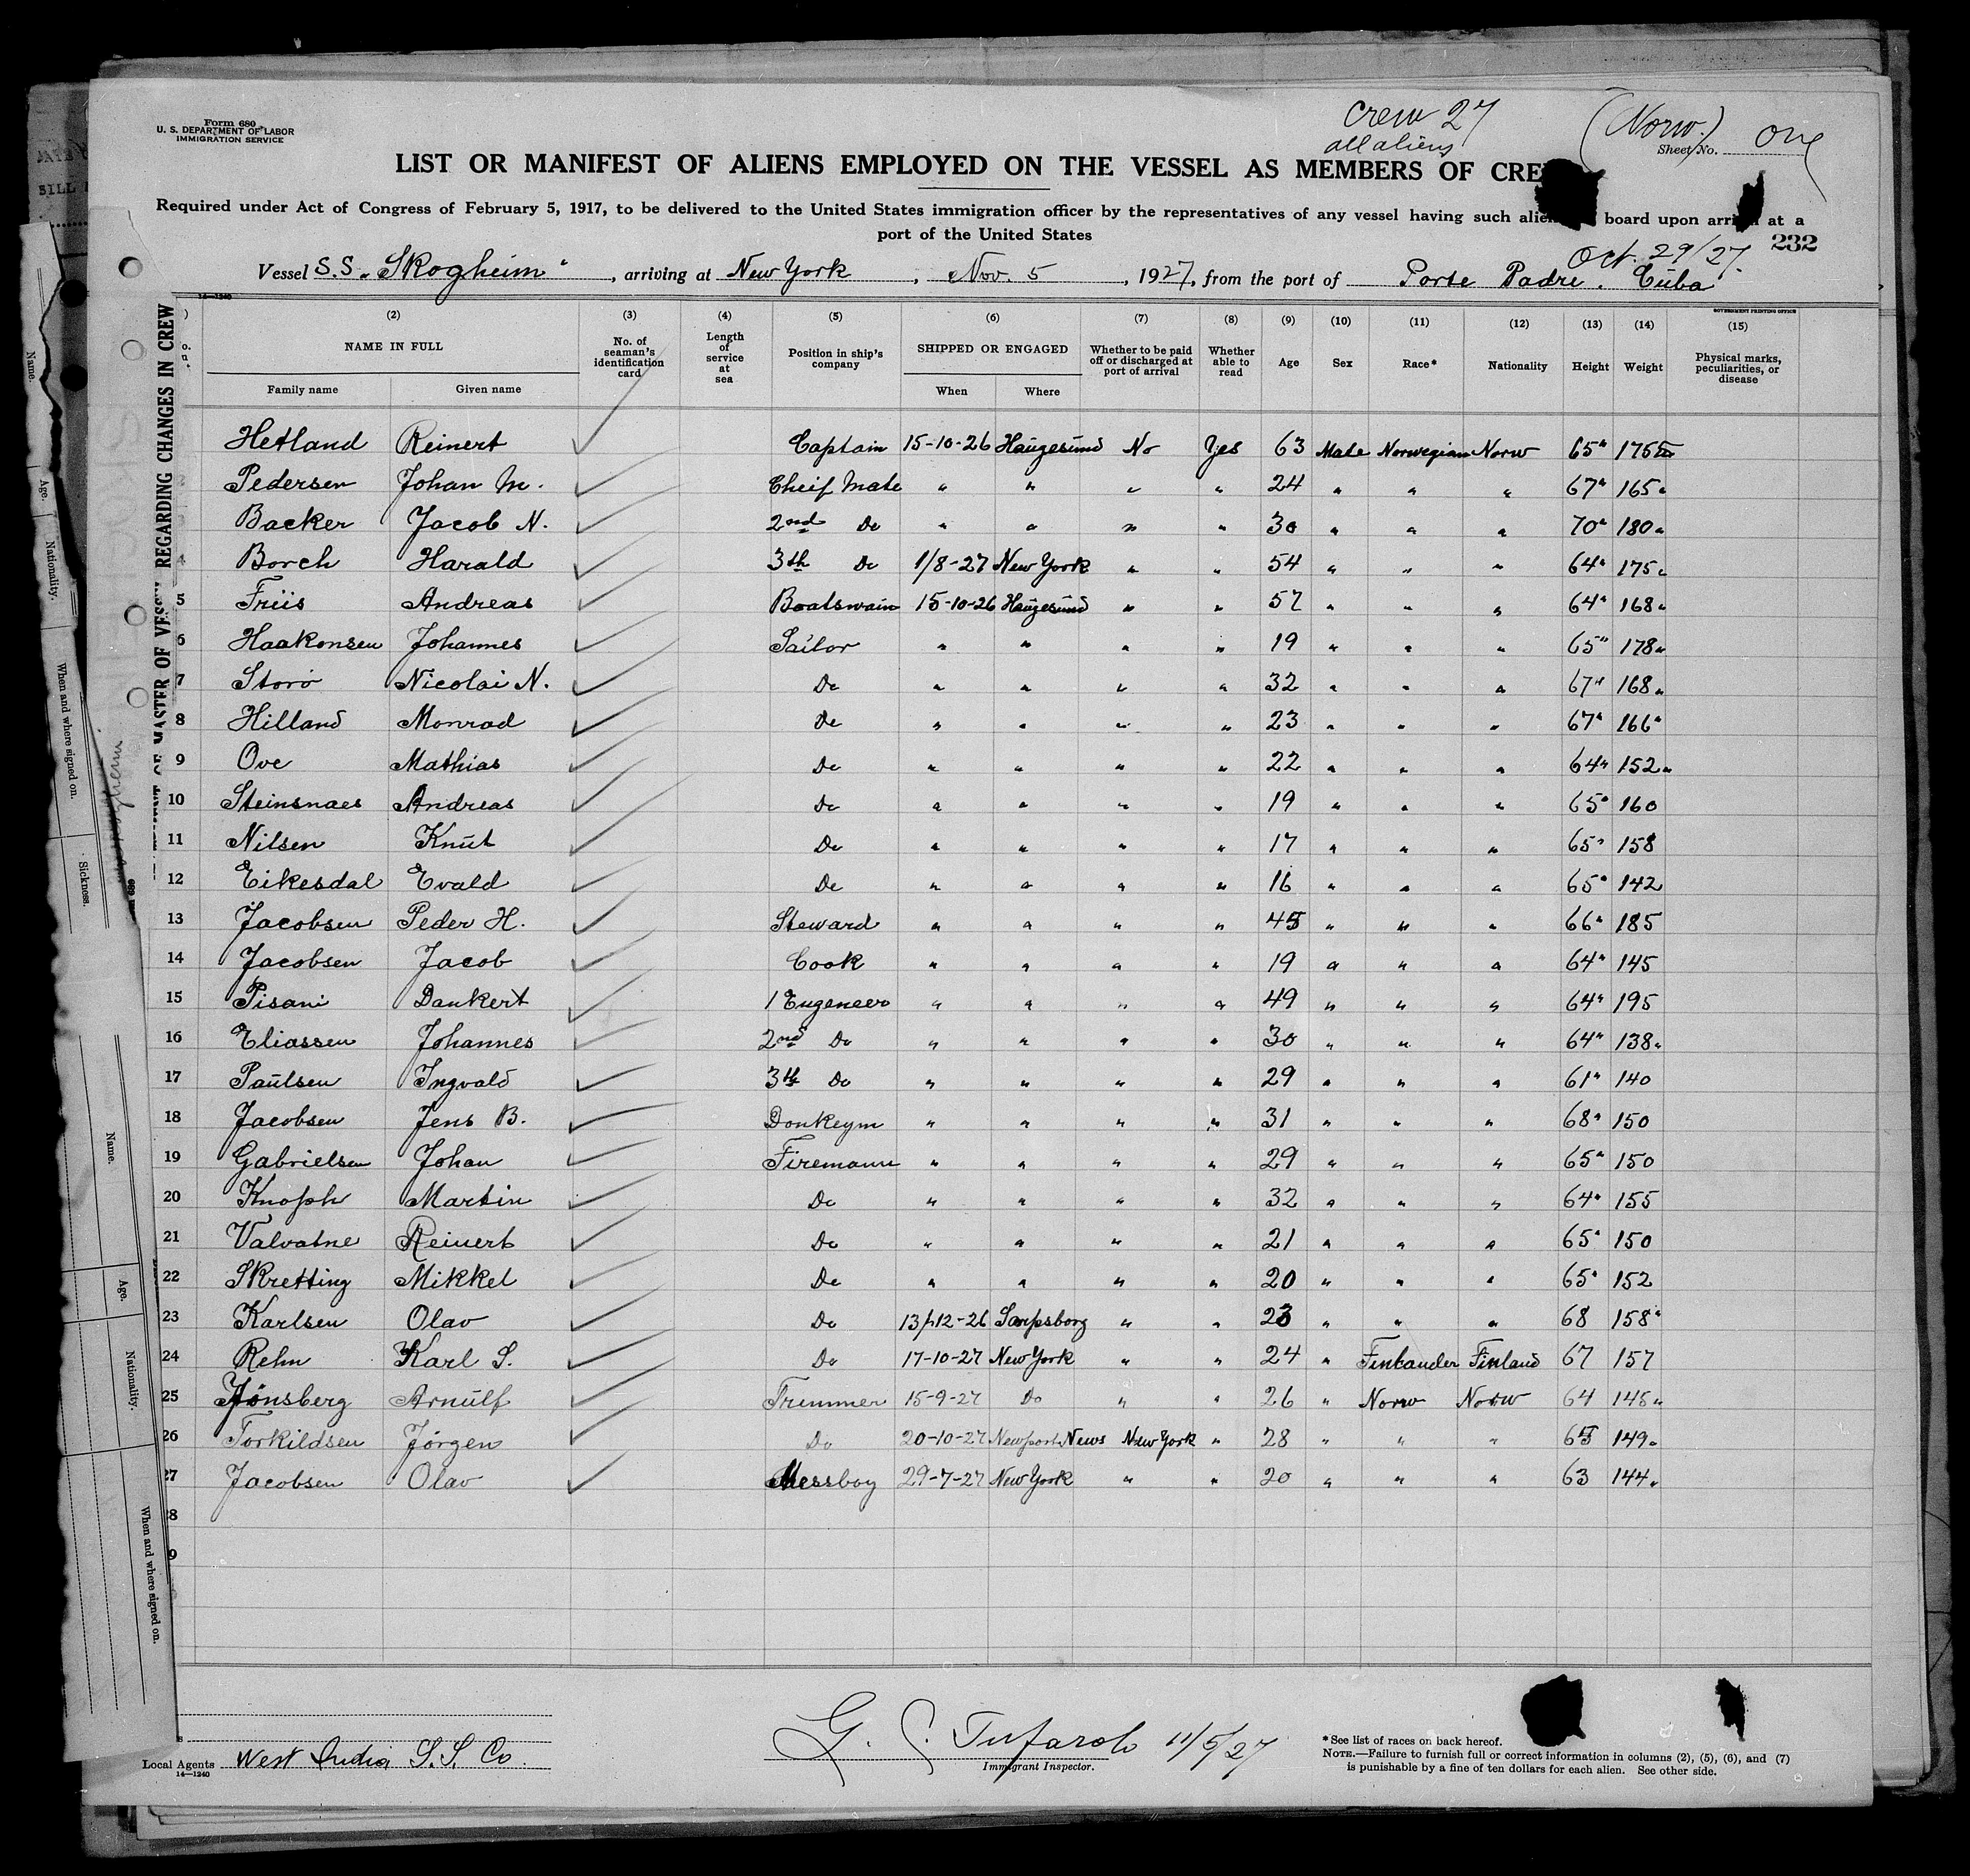 Form 680
U. S. DEPARTMENT OF LABOR
IMMIGRATION SERVICE
Crew 27
all aliens
(Norw.)
Sheet No. One
LIST OR MANIFEST OF ALIENS EMPLOYED ON THE VESSEL AS MEMBERS OF CRE
Required under Act of Congress of February 5, 1917, to be delivered to the United States immigration officer by the representatives of any vessel having such board upon at a
port of the United States
232
Oct. 29/27.
Vessel S.S. „Skogheim", arriving at New York, Nov. 5, 1927, from the port of Porte Padre. Cuba
14—1240
GOVERNMENT PRINTING OFFICE
(2) (3) (4) (5) (6) (7) (8) (9) (10) (11) (12) (13) (14) (15)
NAME IN FULL No. of seaman's identification card Length of service at sea Position in ship's company SHIPPED OR ENGAGED Whether to be paid off or discharged at port of arrival Whether able to read Age Sex Race* Nationality Height Weight Physical marks, peculiarities, or disease
Family name Given name When Where
Hetland Reinert Captain 15-10-26 Haugesund No Yes 63 Male Norwegian Norw 65" 175
2 Pedersen Johan M. Cheif Mate " " " " 24 " " " 67" 165 "
Backer Jacob N. 2nd Do " " " " 30 " " " 70" 180 "
4 Borch Harald 3th Do 1/8-27 New York " " 54 " " " 64" 175 "
5 Friis Andreas Boatswain 15-10-26 Haugesund " " 57 " " " 64" 168 "
6 Haakonsen Johannes Sailor " " " " 19 " " " 65" 178 "
7 Storo Nicolai N. Do " " " " 32 " " " 67" 168 "
8 Hilland Monrad Do " " " " 23 " " " 67" 166 "
9 Ove Mathias Do " " " " 22 " " " 64" 152 "
10 Steinsnaes Andreas Do " " " " 19 " " " 65" 160
11 Nilsen Knut Do " " " " 17 " " " 65" 158
12 Eikesdal Evald Do " " " " 16 " " " 65" 142
13 Jacobsen Peder H. Steward " " " " 45 " " " 66" 185
14 Jacobsen Jacob Cook " " " " 19 " " " 64" 145
15 Pisani Dankert 1 Engeneer " " " " 49 " " " 64" 195
16 Eliassen Johannes 2nd Do " " " " 30 " " " 64" 138 "
17 Paulsen Ingvald 3th Do " " " " 29 " " " 61" 140
18 Jacobsen Jens B. Donkeym " " " " 31 " " " 68" 150
19 Gabrielsen Johan Firemann " " " " 29 " " " 65" 150
20 Knoph Martin Do " " " " 32 " " " 64" 155
21 Valvatne Reinert Do " " " " 21 " " " 65" 150
22 Skretting Mikkel Do " " " " 20 " " " 65" 152
23 Karlsen Olav Do 13/12-26 Sarpsborg " " 23 " " " 68 158 "
24 Rehn Karl S. Do 17-10-27 New York " " 24 " Finlander Finland 67 157
25 Jönsberg Arnulf Tremmer 15-9-27 Do " " 26 " Norw Norw 64 145 "
26 Torkildsen Jørgen Do 20-10-27 Newport News New York " 28 " " " 65 149 "
27 Jacobsen Olav Messboy 29-7-27 New York " " 20 " " " 63 144 "
28
29
Local Agents West India S.S. Co.
14—1240
11/5/27
Immigrant Inspector.
* See list of races on back hereof.
NOTE.—Failure to furnish full or correct information in columns (2), (5), (6), and (7)
is punishable by a fine of ten dollars for each alien. See other side.
MASTER OF REGARDING CHANGES IN CREW
Name.
Age.
Nationality.
When and where signed on.
Sickness.
Name.
Age.
Nationality.
When and where signed on.